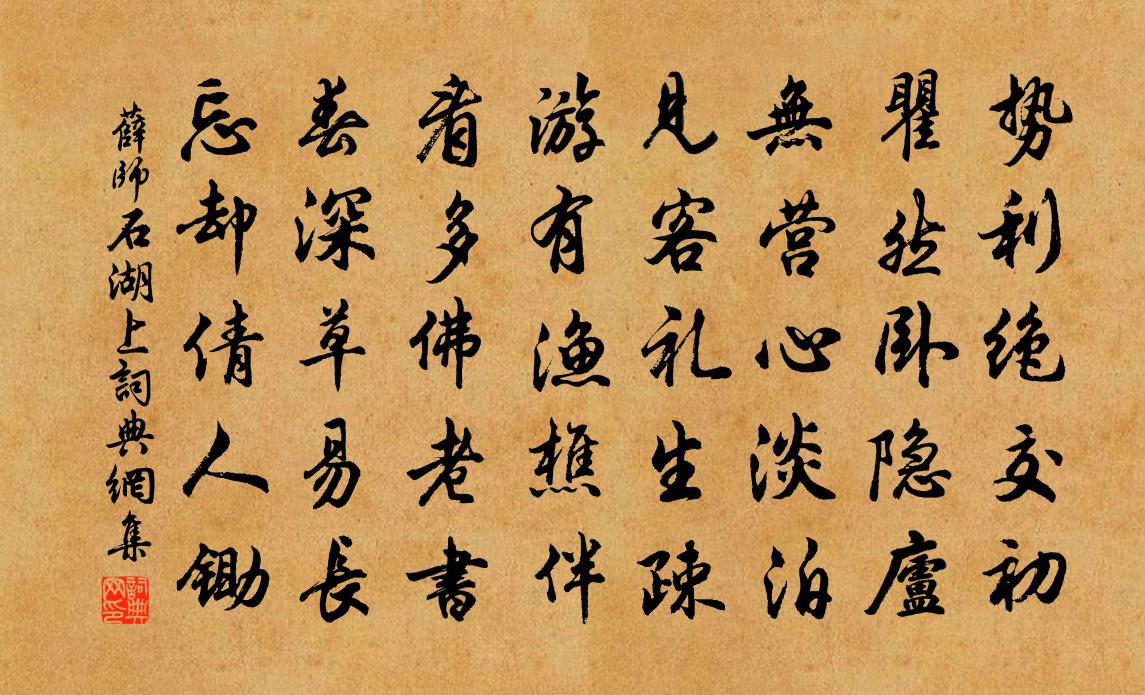 势利绝交初
瞿然卧隐廬
無营心淡泊
見客礼生疎
游有漁樵伴
看多佛老書
春深草易長
忘却倩人鋤
薛師石湖上詞典網集
詞典网印